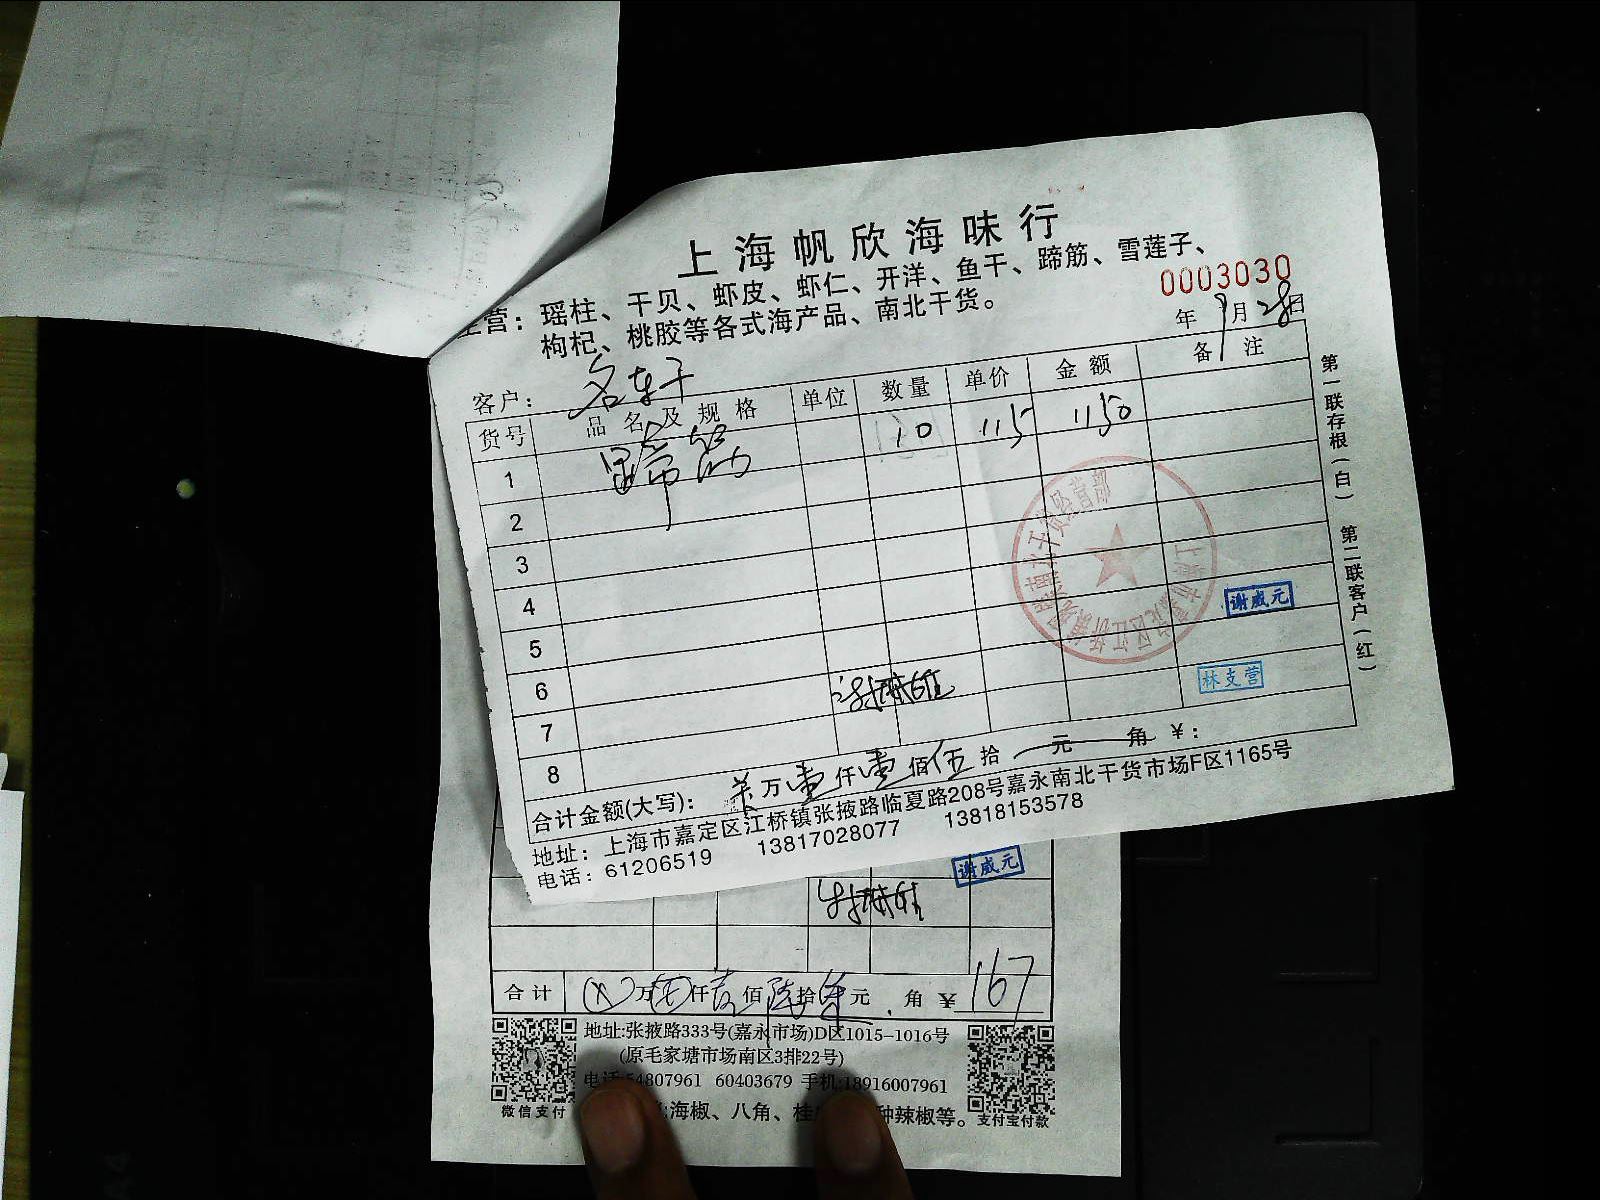 上海帆欣海味行
主营：瑶柱、干贝、虾皮、虾仁、开洋、鱼干、蹄筋、雪莲子、
枸杞、桃胶等各式海产品、南北干货。
0003030
年 9月 28日
客户：
货号 品名及规格 单位 数量 单价 金额 备注
1 蹄筋 10 115 1150
2
3
4
5
6
7
8
谢威元
林支营
合计金额(大写)： 万壹仟壹佰伍拾 元 角 ￥：
地址：上海市嘉定区江桥镇张掖路临夏路208号嘉永南北干货市场F区1165号
电话：61206519 13817028077 13818153578
第一联存根(白) 第二联客户(红)
谢威元
合计 万 仟 佰 拾 元 角 ￥ 167
地址:张掖路333号(嘉永市场)D区1015-1016号
(原毛家塘市场南区3排22号)
电话:54807961 60403679 手机:18916007961
海椒、八角、 种辣椒等。
微信支付
支付宝付款